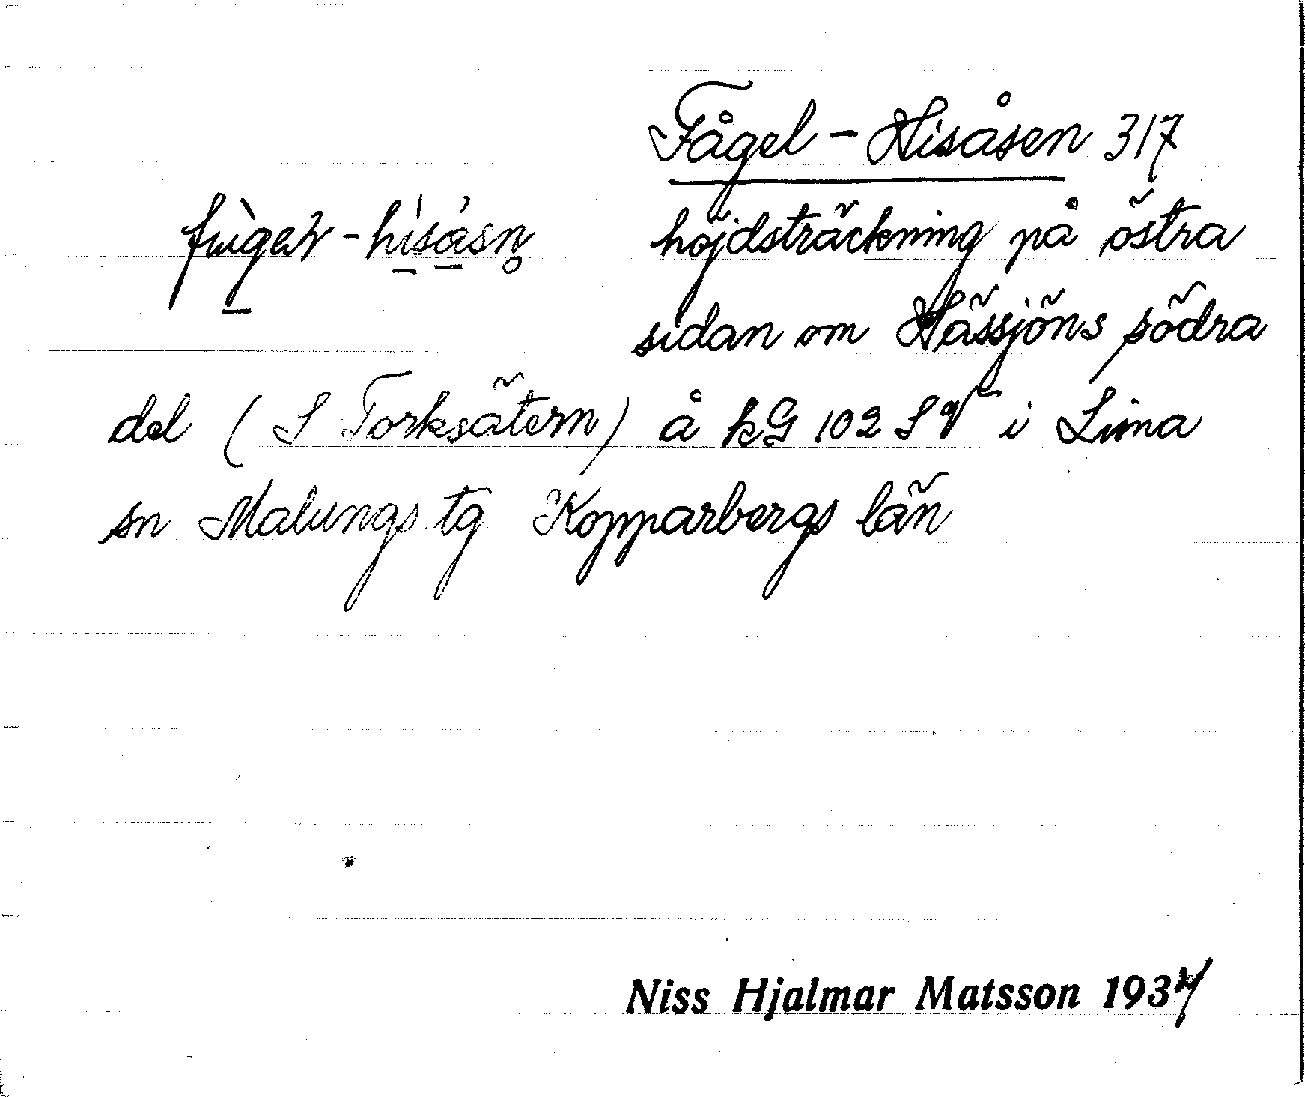 Fågel-Hisåsen 317
höjdsträckning på östra
sidan om Hässjöns södra
del (S Torksätern) å kG 102 SV i Lima
sn Malungs tg Kopparbergs län
Niss Hjalmar Matsson 1937